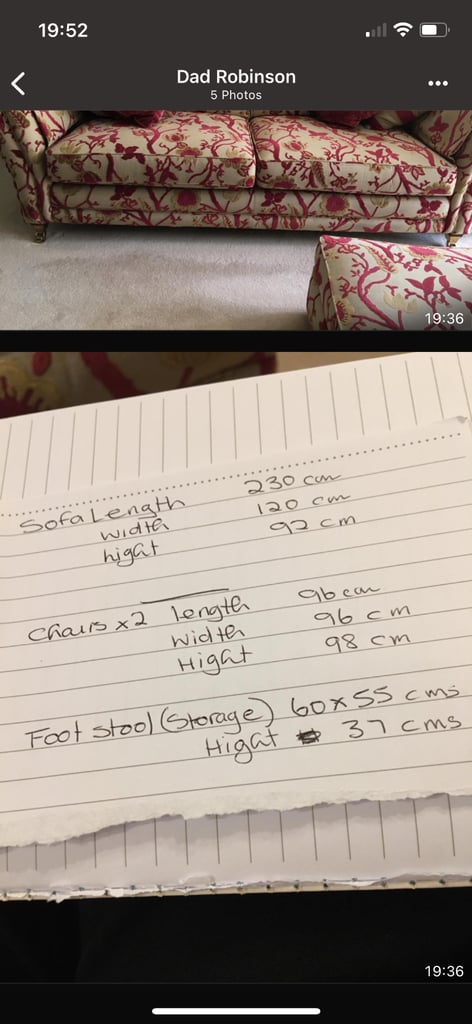 19:52
Dad Robinson
5 Photos
19:36
Sofa Length 230 cm
width 120 cm
hight 92 cm
Chairs x2 length 96 cm
Width 96 cm
Hight 98 cm
Foot stool (Storage) 60 x 55 cms
Hight 37 cms
19:36